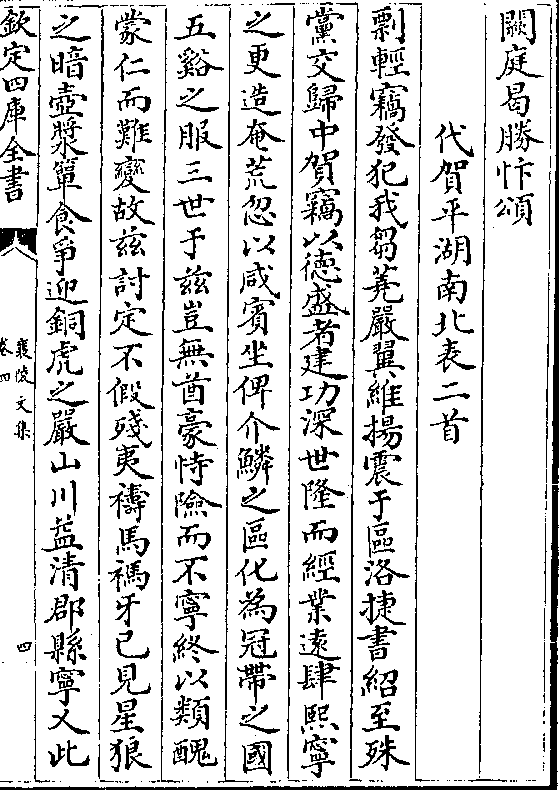 闕庭曷勝忭頌
代賀平湖南北表二首
剽輕竊發犯我芻蕘嚴翼維揚震于區洛捷書紹至殊
黨交歸中賀竊以徳盛者建功深世隆而經業遠肆熙寧
之更造奄荒忽以咸賓坐俾介鱗之區化為冠帶之國
五谿之服三世于兹豈無酋豪恃險而不寧終以類醜
蒙仁而難變故兹討定不假殘夷禱馬禡牙已見星狼
之暗壺漿簞食爭迎銅虎之嚴山川益清郡縣寧乂此
欽定四庫全書
襄陵文集
卷四
四